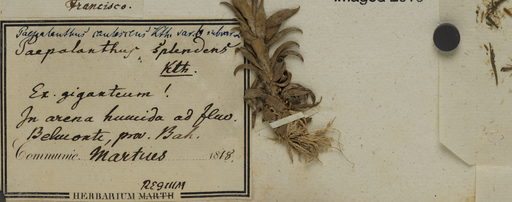 Francisco.
Paepalanthus Kth. var.
Paepalanthus splendens
Kth.
Ex. giganteum!
In arena humida ad fluv.
Belmonte, prov. Bah.
Communic. Martius 1818
REGIUM
HERBARIUM MARTII